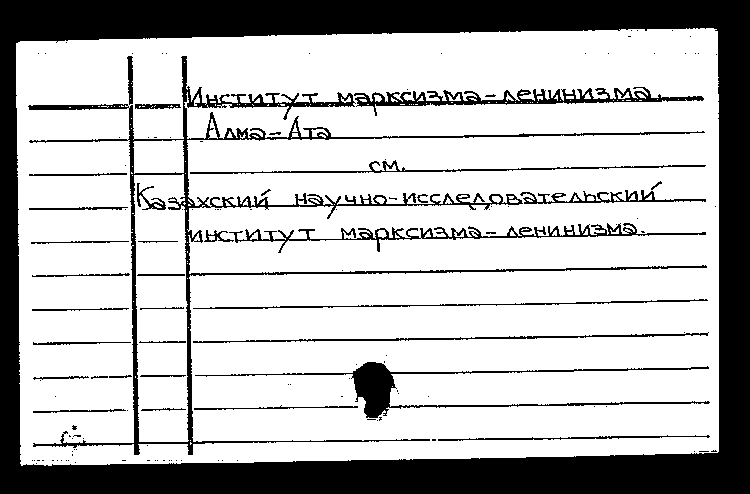 Институт марксизма-ленинизма.
Алма-Ата
см.
Казахский научно-исследовательский
институт марксизма-ленинизма.